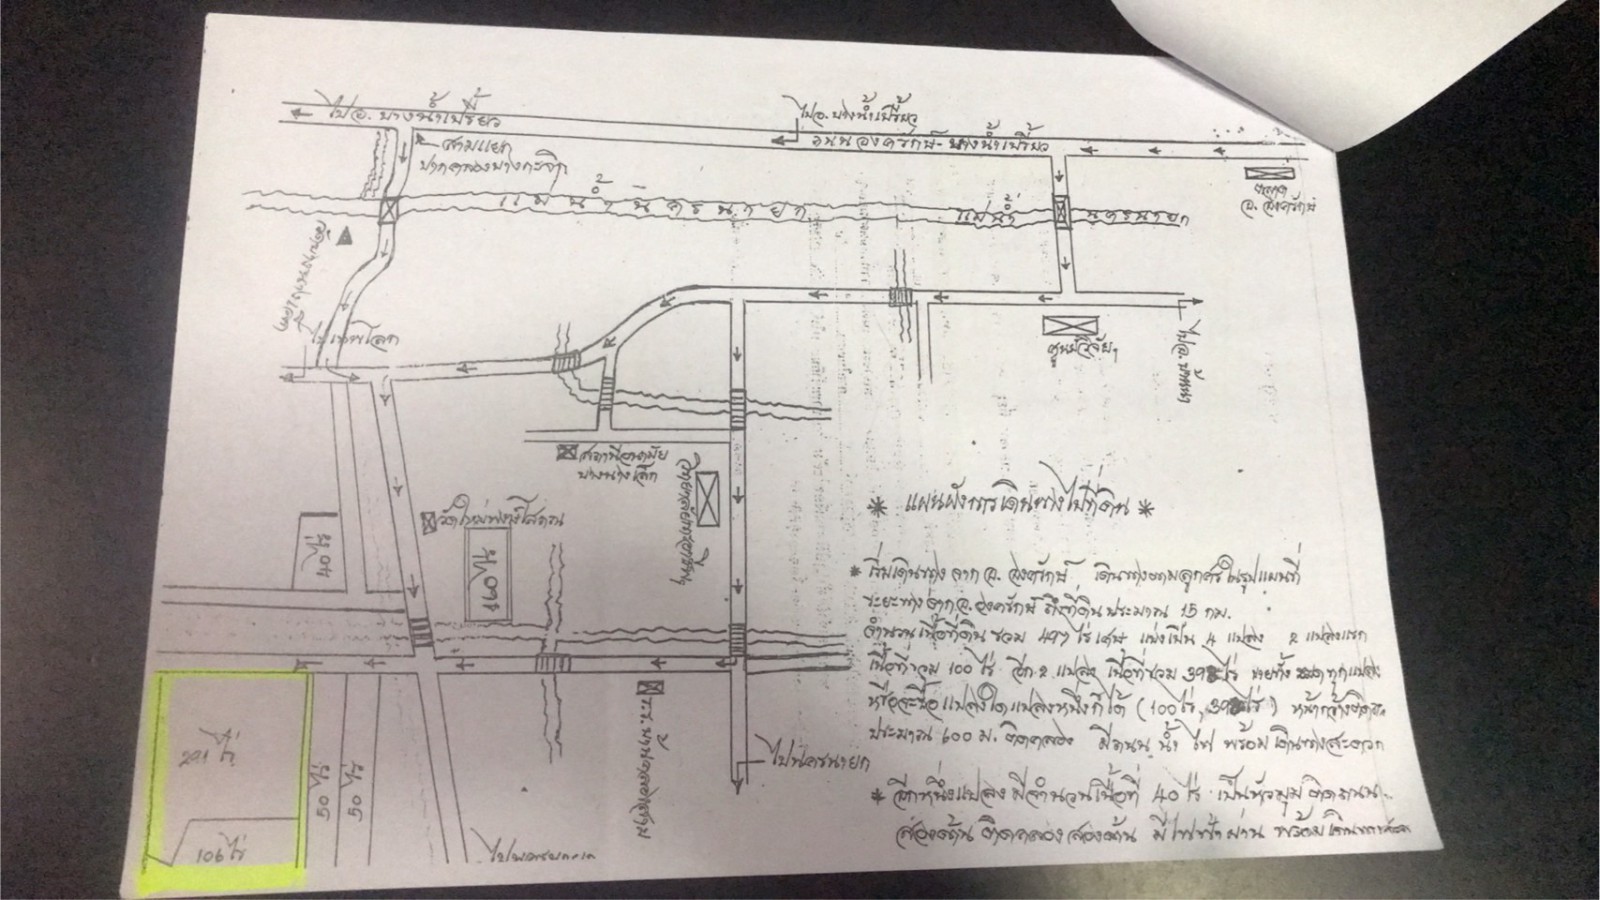 ไป อ. บางน้ำเปรี้ยว
ไป อ. บางน้ำเปรี้ยว
ถนนองครักษ์-บางน้ำเปรี้ยว
สามแยก
ปากคลองบางกะจิก
ตลาด
อ. องครักษ์
แม่น้ำนครนายก
แม่น้ำ นครนายก
ไป อ. บ้านนา
ศูนย์วิจัยฯ
สถานีอนามัย
บางนางเล็ก
40 ไร่
140 ไร่
291 ไร่
106 ไร่
50 ไร่
50 ไร่
ไปนครนายก
ไปนครนายก
* แผนผังการเดินทางไปที่ดิน *
* เริ่มเดินทางจาก อ. องครักษ์ เดินทางตามลูกศรในรูปแผนที่
ระยะทางจาก อ. องครักษ์ ถึงที่ดินประมาณ 15 กม.
จำนวนเนื้อที่ดินรวม 497 ไร่เศษ แบ่งเป็น 4 แปลง 2 แปลงแรก
เนื้อที่รวม 100 ไร่ อีก 2 แปลง เนื้อที่รวม ขายทั้ง ทุกแปลง
หรือจะซื้อแปลงใดแปลงหนึ่งก็ได้ (100 ไร่, ) หน้ากว้างติด
ประมาณ 600 ม. ติดคลอง มีถนน น้ำ ไฟ พร้อมเดินทางสะดวก
* อีกหนึ่งแปลง มีจำนวนเนื้อที่ 40 ไร่ เป็นหัวมุม ติดถนน
สองด้าน ติดคลองสองด้าน มีไฟฟ้าผ่าน พร้อมเดินทาง